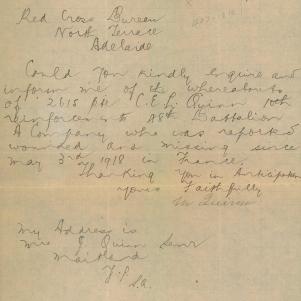 Red Cross Bureau
North Terrace
Adelaide
Could you kindly enquire and
inform me of the whereabouts
of 2615 Pte C.E.L. Quinn 10th
Reinforcements 48th Battalion
A Company who was reported
wounded and missing since
may 3rd 1918 in France.
Thanking you in Anticipation
yours Faithfully
M Quinn
My Address is
Mrs J Quinn Senr
Maitland
Y.P.
S.A.